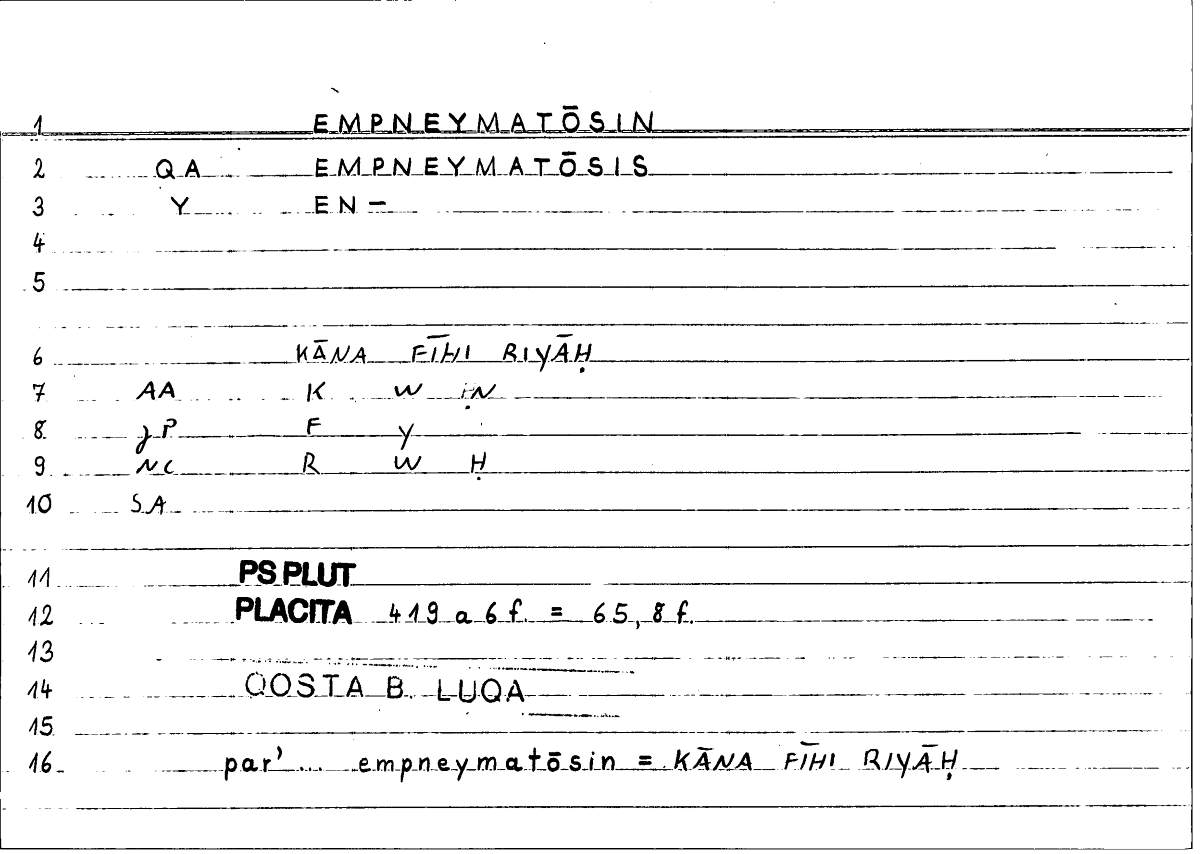 1 EMPNEYMATŌSIN
2 QA EMPNEYMATŌSIS
3 Y EN-
4
5
6 KĀNA FĪHI RIYĀḤ
7 AA K W N
8 P F Y
9 NC R W Ḥ
10 SA
11 PS PLUT
12 PLACITA 419 a 6 f. = 65,8 f.
13
14 QOSTA B. LUQA
15
16 par' ... empneymatōsin = KĀNA FĪHI RIYĀḤ